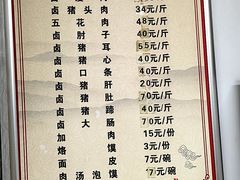 卤猪头肉 34元/斤
卤五花肉 48元/斤
卤肘子 40元/斤
卤猪耳 55元/斤
卤猪心 40元/斤
卤口条 40元/斤
卤猪肝 20元/斤
卤猪肚 70元/斤
卤猪蹄 40元/斤
卤大肠 70元/斤
加肉 15元/份
烙馍 3元/
面皮 7元/碗
肉汤泡馍 7元/碗